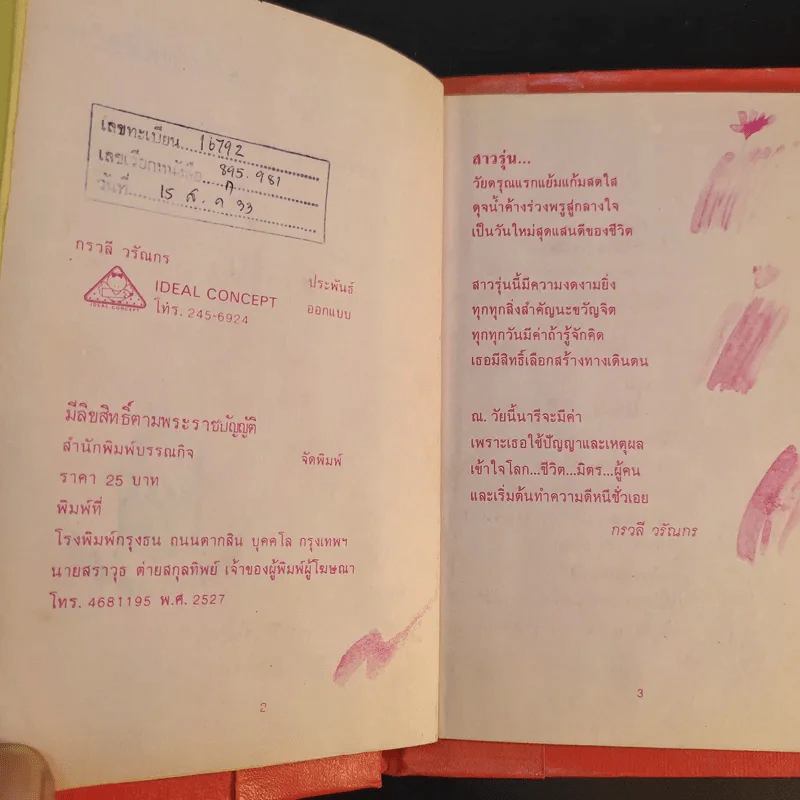 เลขทะเบียน....16792
เลขเรียกหนังสือ...895.981
ก
วันที่.....15 ส.ค 33
กรวลี วรัณกร
ประพันธ์
IDEAL CONCEPT
IDEAL CONCEPT
ออกแบบ
โทร. 245-6924
มีลิขสิทธิ์ตามพระราชบัญญัติ
สำนักพิมพ์บรรณกิจ จัดพิมพ์
ราคา 25 บาท
พิมพ์ที่
โรงพิมพ์กรุงธน ถนนตากสิน บุคคโล กรุงเทพฯ
นายสราวุธ ต่ายสกุลทิพย์ เจ้าของผู้พิมพ์ผู้โฆษณา
โทร. 4681195 พ.ศ. 2527
2
สาวรุ่น...
วัยดรุณแรกแย้มแก้มสดใส
ดุจน้ำค้างร่วงพรูสู่กลางใจ
เป็นวันใหม่สุดแสนดีของชีวิต
สาวรุ่นนี้มีความงดงามยิ่ง
ทุกทุกสิ่งสำคัญนะขวัญจิต
ทุกทุกวันมีค่าถ้ารู้จักคิด
เธอมีสิทธิ์เลือกสร้างทางเดินตน
ณ. วัยนี้นารีจะมีค่า
เพราะเธอใช้ปัญญาและเหตุผล
เข้าใจโลก...ชีวิต...มิตร...ผู้คน
และเริ่มต้นทำความดีหนีชั่วเอย
กรวลี วรัณกร
3